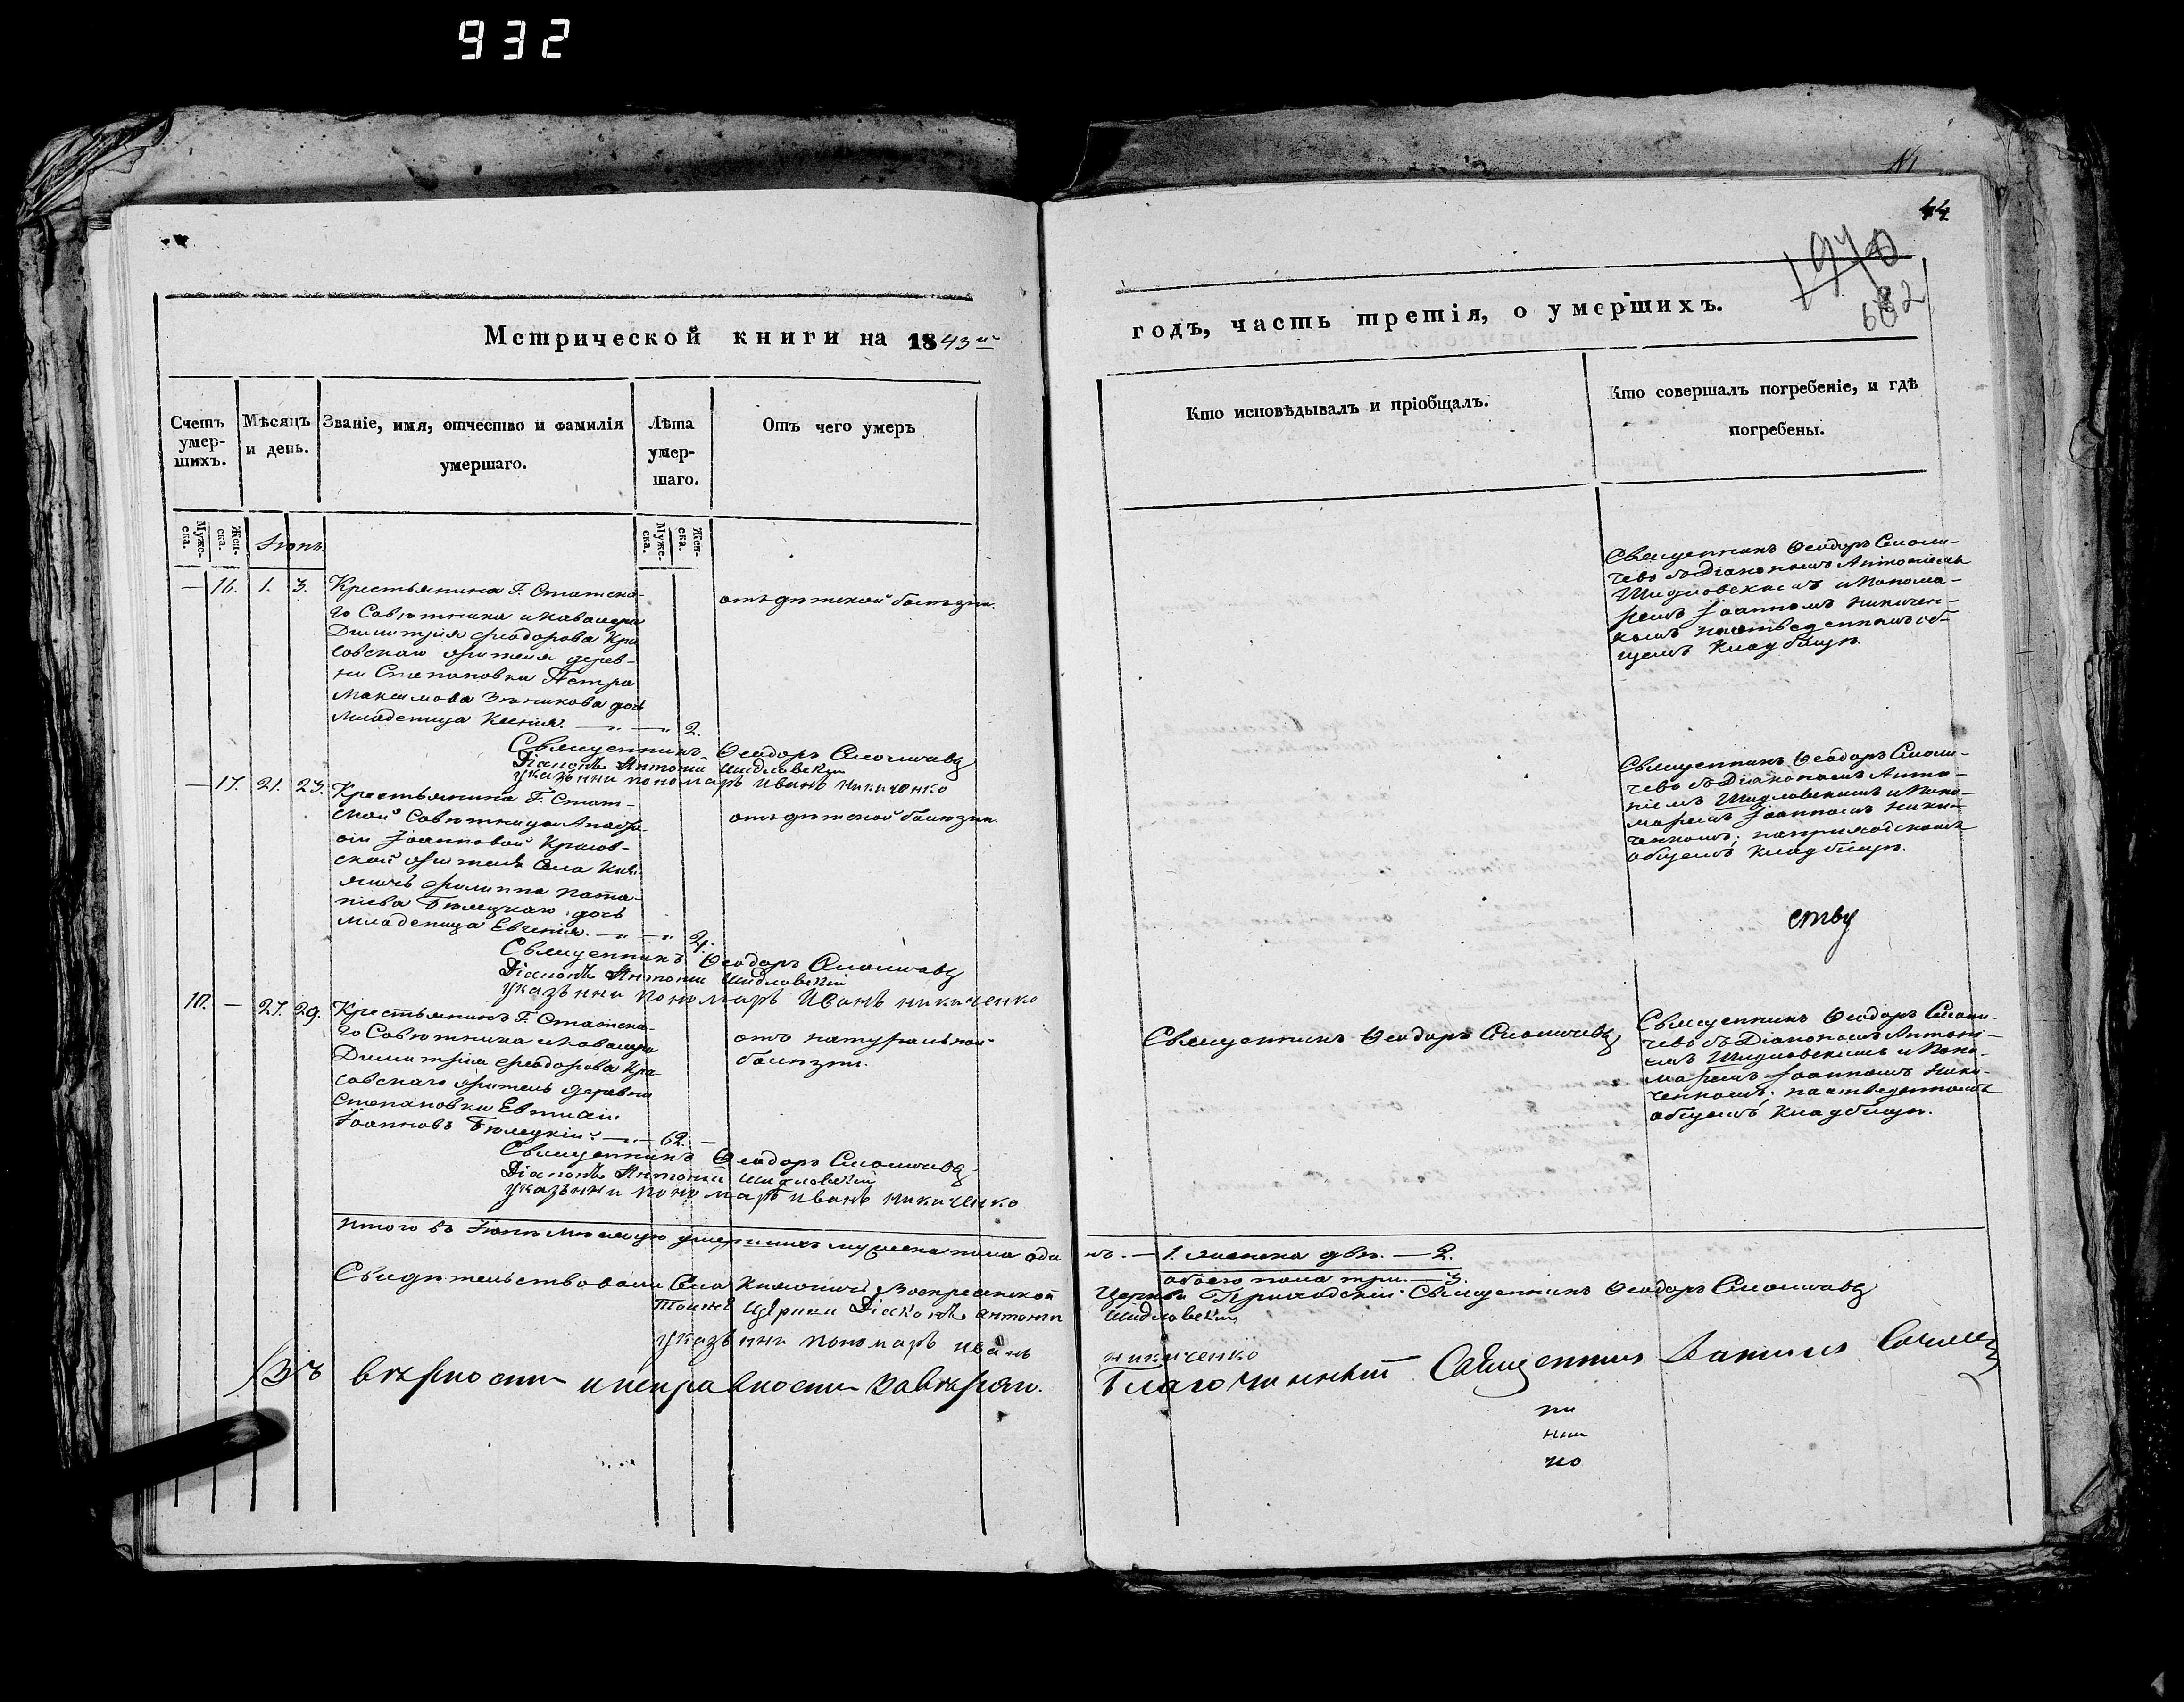 932
44
1940
682
Метрической книги на 1843й
годъ, часть третія, о умершихъ.
Счетъ умер-
шихъ.
Мѣсяцъ
и день.
Званіе, имя, отчество и фамилія
умершаго.
Лѣта
умер-
шаго.
Отъ чего умеръ
Кто исповѣдывалъ и пріобщалъ.
Кто совершалъ погребеніе, и гдѣ
погребены.
Муже-
ска.
Жен-
ска.
Муже-
ска.
Жен-
ска.
— 16. 1. 3.
Крестьянина Г. Статска-
го Совѣтника и кавалера
Димитрія Феодорова Кра
совскаго жителя дерев-
ни Степановки Петра
Максимова дочь
младеница Ксенія. — „ — „ 2.
отъ дѣтской болѣзни.
Священникъ Ѳеодоръ
съ Діакономъ Антоніемъ
Шидловскимъ и Понома-
ремъ Іоанномъ Никичен-
комъ об-
щемъ кладбищѣ.
Священникъ Ѳеодоръ
Діаконъ Антоній Шидловскій
указнни пономарь Иванъ Никиченко
— 17. 21. 23.
Крестьянина Г. Стат-
ской Совѣтницы Анаста-
сіи Іоанновой Красов-
ской жителя Села
Филиппа Пота-
піева Бѣлецкаго дочь
младеница Евгенія. — „ — „
отъ дѣтской болѣзни.
Священникъ Ѳеодоръ
съ Діакономъ Анто-
ніемъ Шидловскимъ и Поно-
маремъ Іоанномъ Ники-
ченкомъ, на приходскомъ
общемъ кладбищѣ.
ству
Священникъ Ѳеодоръ
Діаконъ Антоній Шидловскій
указѣнни пономарь Иванъ Никиченко
10. — 27. 29.
Крестьянинъ Г. Статска-
го Совѣтника и Кавалера
Димитрія Феодорова Кра-
совскаго житель деревни
Степановки Евтихій
Іоанновъ Бѣлецкій. — „ — 62. —
отъ натуральной
болѣзни.
Священникъ Ѳеодоръ
Священникъ Ѳеодоръ
съ Діакономъ Антоні-
емъ Шидловскимъ и Поно-
маремъ Іоанномъ Ники-
ченкомъ,
общемъ кладбищѣ.
Священникъ Ѳеодоръ
Діаконъ Антоній Шидловскій
указѣнни пономарь Иванъ Никиченко
Итого въ Іюнѣ Мѣсяцѣ умершихъ мужеска пола оди
нъ. — 1. женска двѣ. — 2.
обоего пола три. — 3.
Свидѣтельствовали Села Воскресенской
Церкви Приходскій Священникъ Ѳеодоръ
Тоижъ церкви Діаконъ Антоній
Шидловскій
указѣнни пономарь Иванъ
никиченко
Въ вѣрности и исправности
Благочинный Священникъ